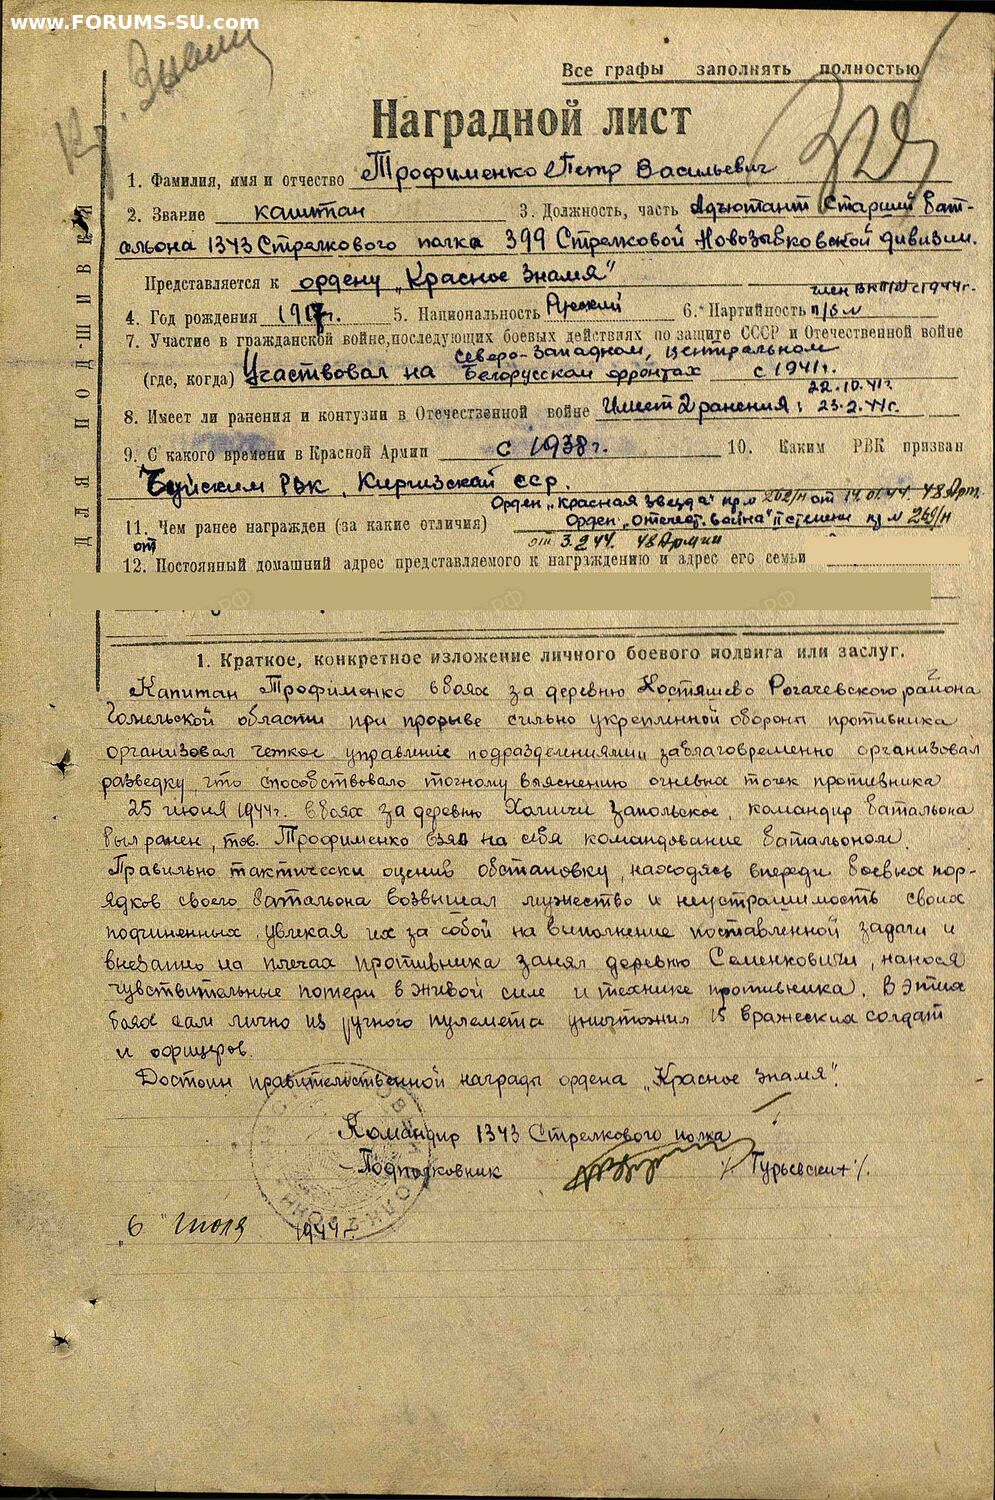 www.FORUMS-SU.com
Кр. Знамя
Все графы заполнять полностью
Наградной лист
1. Фамилия, имя и отчество Трофименко Петр Васильевич
2. Звание капитан 3. Должность, часть Адъютант Старший бат-
альона 1343 Стрелкового полка 399 Стрелковой Новозыбковской дивизии.
Представляется к ордену „Красное Знамя"
член ВКП(б) с 1944г.
4. Год рождения 1917г. 5. Национальность Русский 6. Партийность п/б №
7. Участие в гражданской войне, последующих боевых действиях по защите СССР и Отечественной войне
Северо-Западном, Центральном
(где, когда) Участвовал на Белорусском фронтах с 1941г.
22.10.41г.
8. Имеет ли ранения и контузии в Отечественной войне Имеет 2 ранения: 23.2.44г.
9. С какого времени в Красной Армии с 1938г. 10. Каким РВК призван
Чуйским РВК, Киргизской ССР.
Орден „Красная Звезда" пр № 262/н от 14.01.44. 48 Арм.
11. Чем ранее награжден (за какие отличия) Орден „Отечест. война" II степени пр № 269/н
от от 3.2.44. 48 Армии
12. Постоянный домашний адрес представляемого к награждению и адрес его семьи
ДЛЯ ПОДШИВКИ
1. Краткое, конкретное изложение личного боевого подвига или заслуг.
Капитан Трофименко в боях за деревню Костяшево Рогачевского района
Гомельской области при прорыве сильно укрепленной обороны противника
организовал четкое управление подразделениями заблаговременно организовал
разведку, что способствовало точному выяснению огневых точек противника
25 июня 1944г. в боях за деревню Холмичи Запольское, командир батальона
был ранен, тов. Трофименко взял на себя командование батальоном.
Правильно тактически оценив обстановку, находясь впереди боевых пор-
ядков своего батальона возвышал мужество и неустрашимость своих
подчиненных, увлекая их за собой на выполнение поставленной задачи и
внезапно на плечах противника занял деревню Семенковичи, нанося
чувствительные потери в живой силе и технике противника. В этих
боях сам лично из ручного пулемета уничтожил 15 вражеских солдат
и офицеров.
Достоин правительственной награды ордена „Красное Знамя".
Командир 1343 Стрелкового полка
Подполковник /Гурьевских/.
„6 июля 1944г.